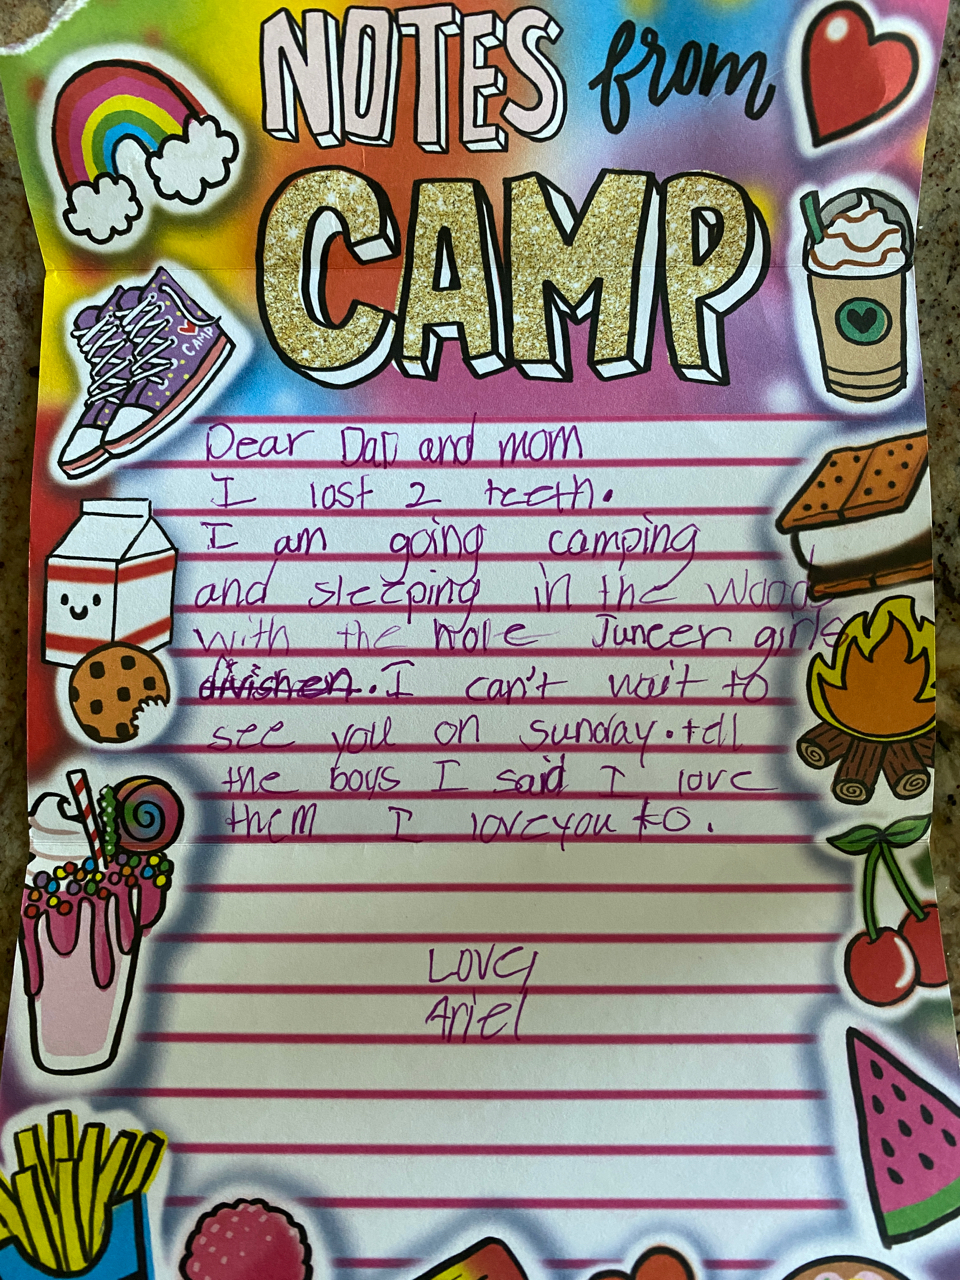 NOTES from
CAMP
CAMP
Dear Dad and mom
I lost 2 teeth.
I am going camping
and sleeping in the woods
with the hole Juncer girls
divishen. I can't wait to
see you on sunday. tell
the boys I said I love
them I love you to.
Love,
Ariel